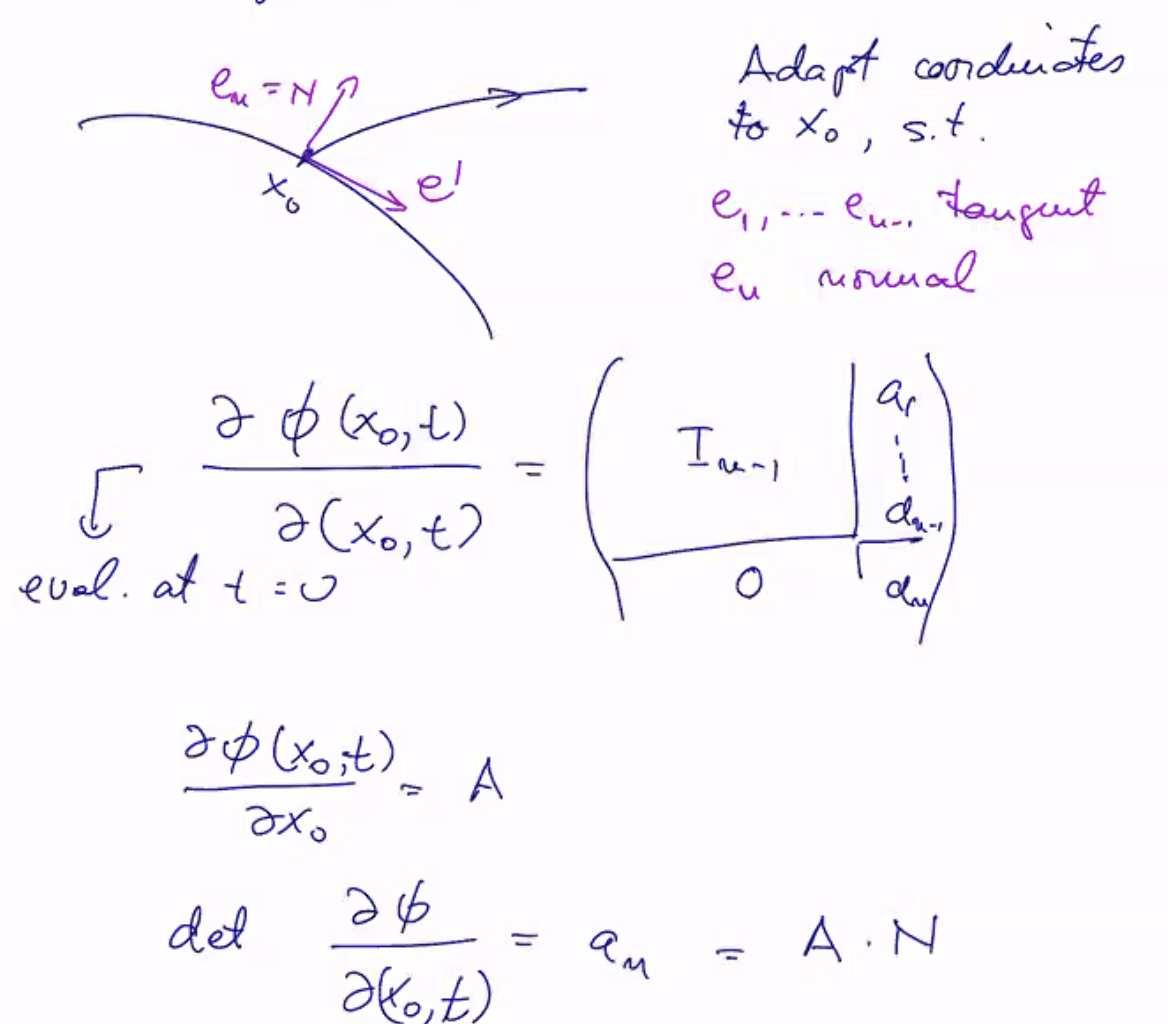 e_n = N
x_0
e'
Adapt coordinates
to x_0, s.t.
e_1, ... e_{n-1} tangent
e_n normal
∂ϕ(x_0,t) / ∂(x_0,t) = ( I_{n-1} | a_1 ⋮ a_{n-1} ; 0 | a_n )
eval. at t = 0
∂ϕ(x_0,t) / ∂x_0 = A
det ∂ϕ / ∂(x_0,t) = a_n = A · N